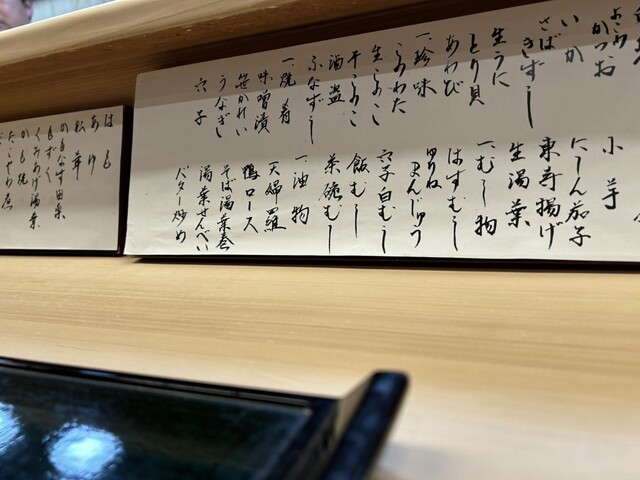 かつお
いか
さば
きずし
生うに
とり貝
あわび
一、珍味
このわた
生このこ
干このこ
酒盗
ふなずし
一、焼肴
味噌漬
笹かれい
うなぎ
穴子
小芋
にしん茄子
東寺揚げ
生湯葉
一、むし物
はすむし
ゆりね
まんじゅう
穴子白むし
飯むし
茶碗むし
一、油物
天婦羅
鴨ロース
そば湯葉巻
湯葉せんべい
バター炒め
はも
あゆ
松茸
かもなす田楽
もずく
くみあげ湯葉